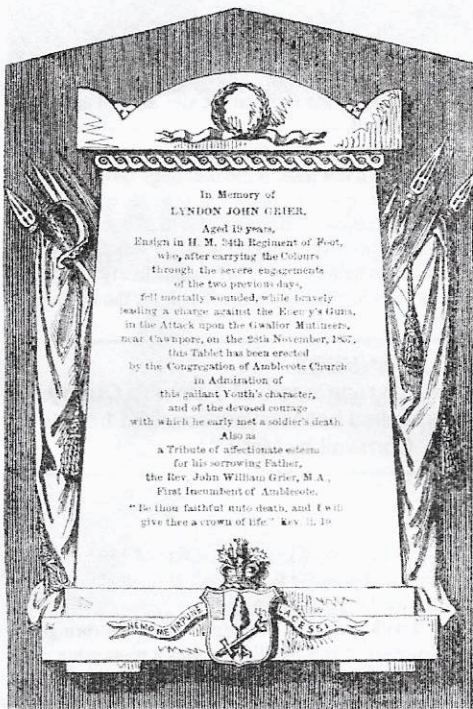 In Memory of
LYNDON JOHN GRIER,
Aged 19 years,
Ensign in H. M. 34th Regiment of Foot,
who, after carrying the Colours
through the severe engagements
of the two previous days,
fell mortally wounded, while bravely
leading a charge against the Enemy's Guns,
in the Attack upon the Gwalior Mutineers,
near Cawnpore, on the 28th November, 1857,
this Tablet has been erected
by the Congregation of Amblecote Church
in Admiration of
this gallant Youth's character,
and of the devoted courage
with which he early met a soldier's death.
Also as
a Tribute of affectionate esteem
for his sorrowing Father,
the Rev. John William Grier, M.A.,
First Incumbent of Amblecote.
"Be thou faithful unto death, and I will
give thee a crown of life." Rev. ii. 10
NEMO ME IMPUNE LACESSIT